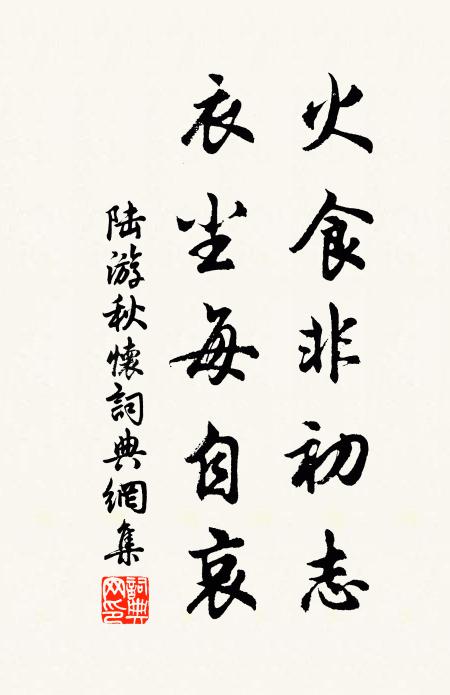 火食非初志
衣尘每自哀
陆游秋懷詞典網集
詞典
网印